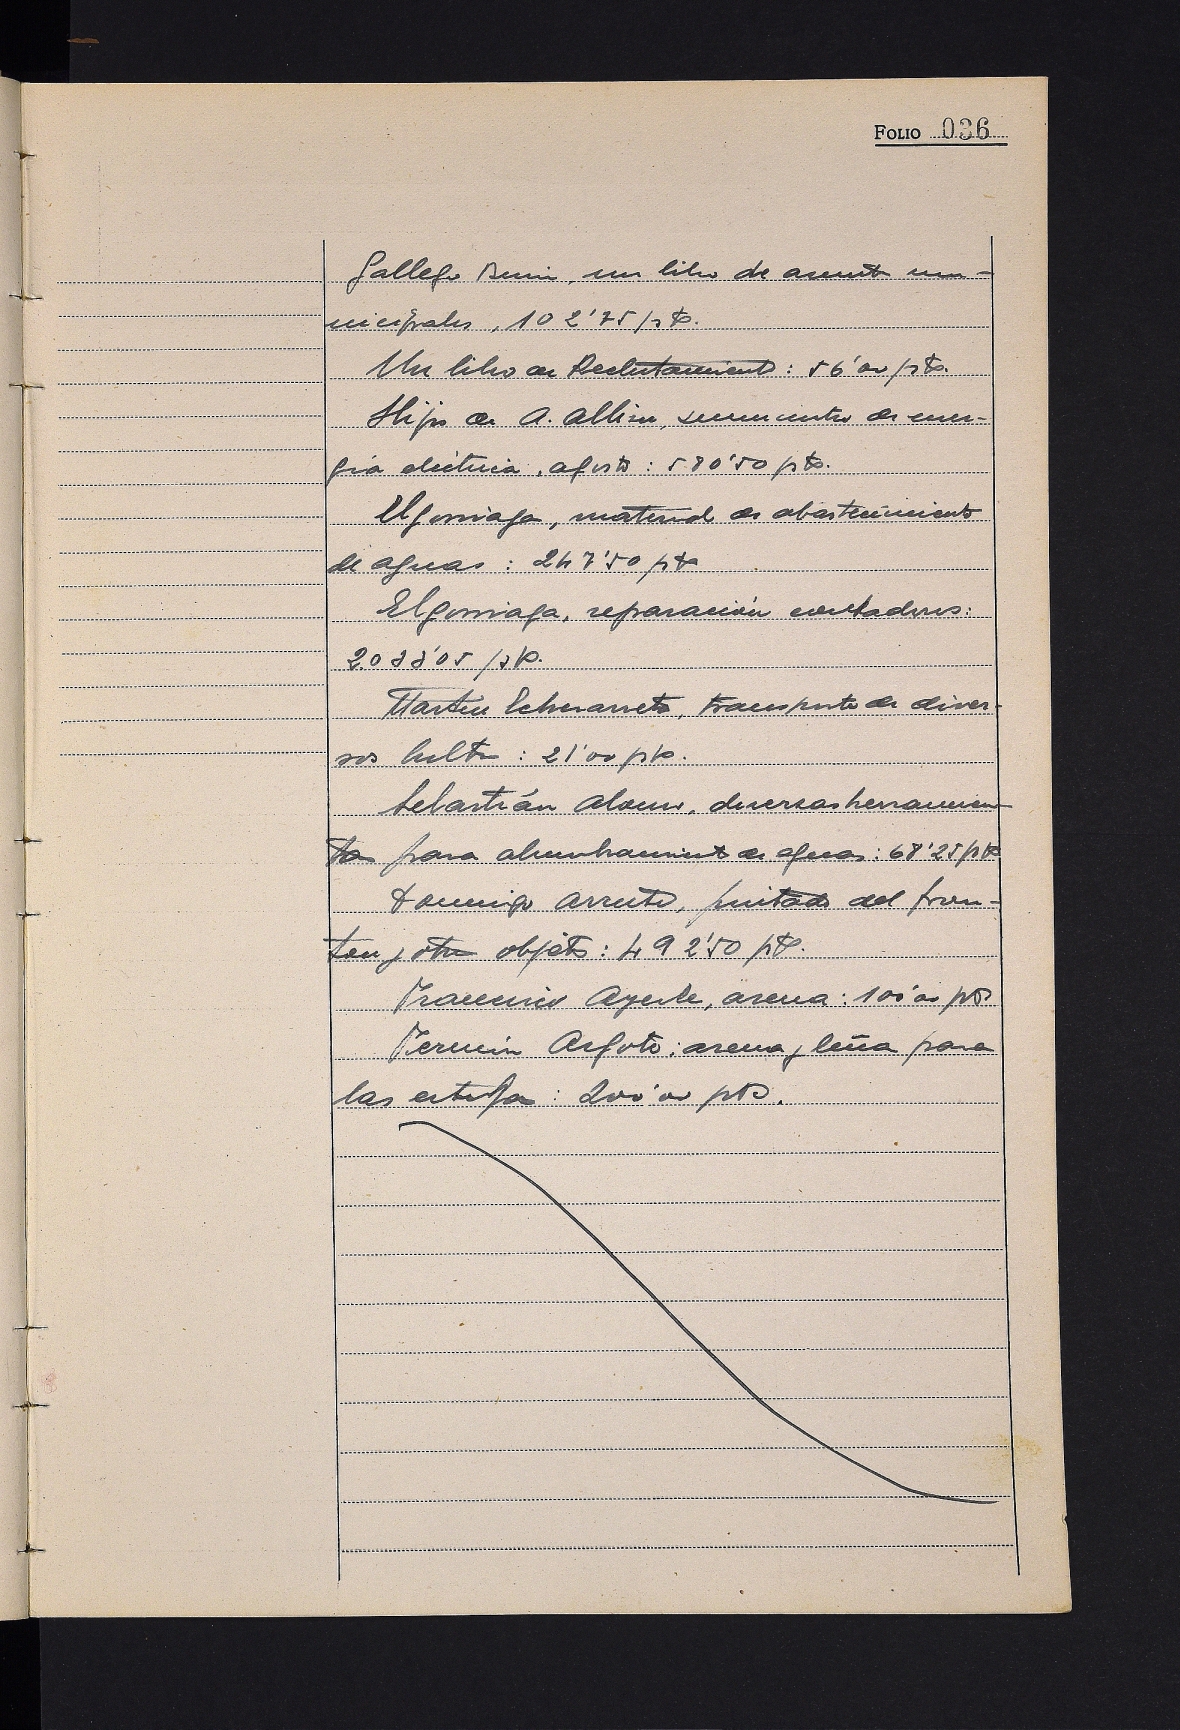 FOLIO 036
Gallego un libro de asuntos mu-
nicipales, 102'75 pts.
Un libro de Reclutamiento: 56'00 pts.
Hijos de A. suministro de ener-
gía eléctrica, agosto: 580'50 pts.
Elgorriaga, material de abastecimiento
de aguas: 247'50 pts
Elgorriaga, reparación contadores:
pts.
Martín Echevarreta, transporte de diver-
sos bultos: 21'00 pts.
Sebastián Alonso, diversas herramien-
tas para alumbramiento de aguas: 68'25 pts
Domingo Arruti, pintado del fron-
ton y otros objetos: 492'50 pts.
Francisco Ayerbe, arena: 100'00 pts
Fermín Argote: arena y leña para
las estufas: 200'00 pts.